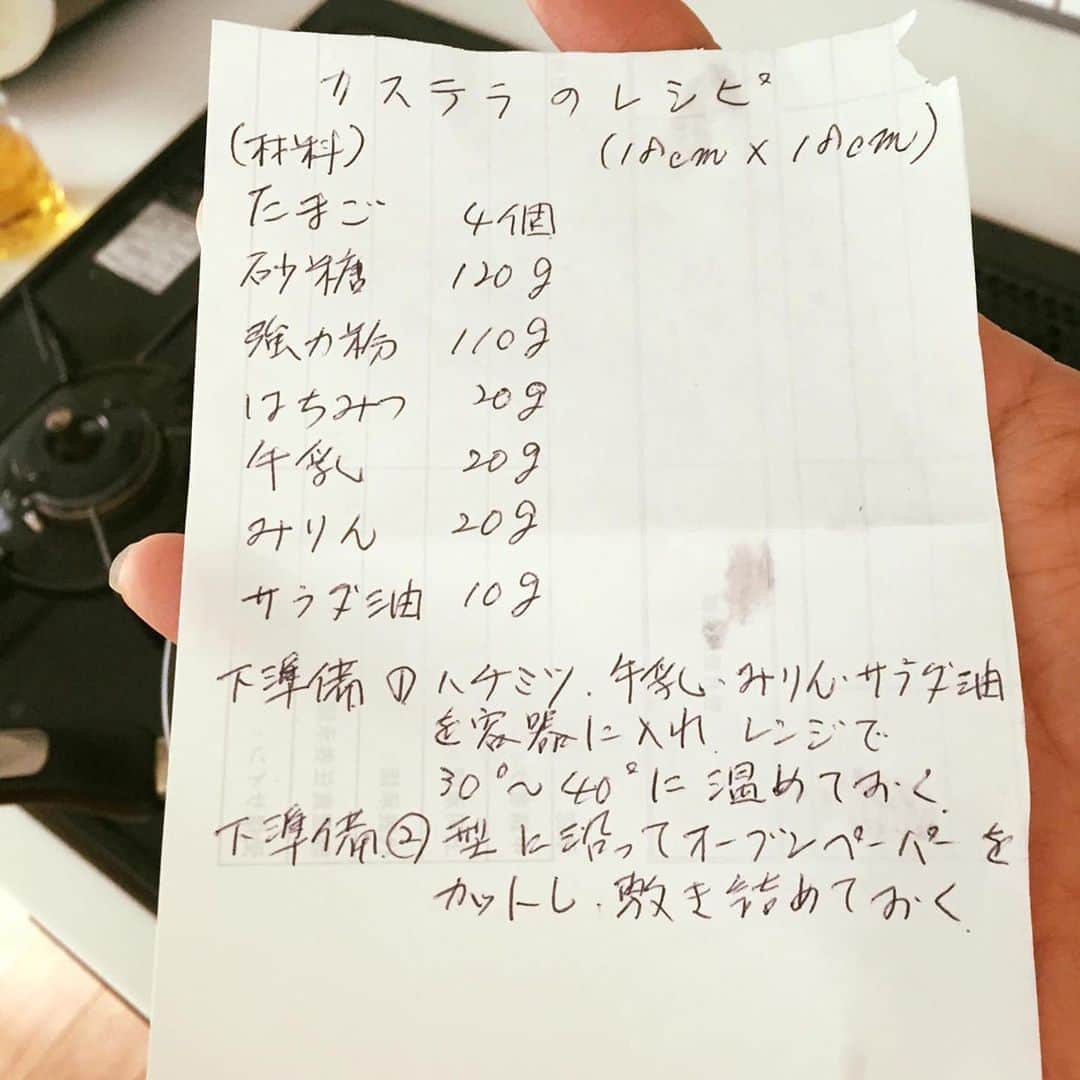 カステラのレシピ
(材料) (18cm x 18cm)
たまご 4個
砂糖 120g
強力粉 110g
はちみつ 20g
牛乳 20g
みりん 20g
サラダ油 10g
下準備① ハチミツ、牛乳・みりん・サラダ油
を容器に入れ、レンジで
30°〜40°に温めておく。
下準備② 型に沿ってオーブンペーパーを
カットし、敷き詰めておく。